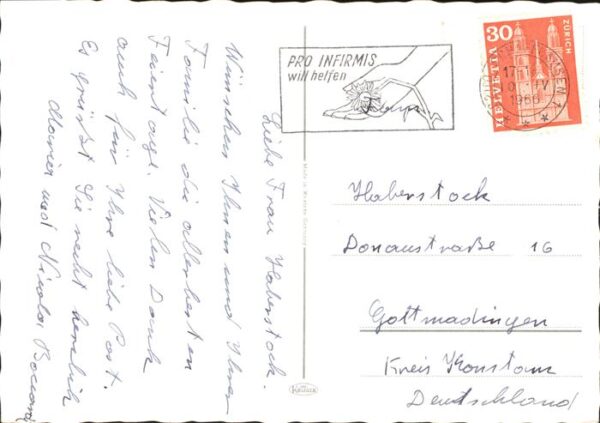 Liebe Frau Haberstock.
Wünschen Ihnen und Ihrer
Familie die allerbesten
Feiertage. Vielen Dank
auch für Ihre liebe Post.
Es grüsst Sie recht herzlich
Maria und Nicola
PRO INFIRMIS
will helfen
30
HELVETIA
ZÜRICH
1966
Haberstock
Donaustraße 16
Gottmadingen
Kreis Konstanz
Deutschland
KRÜGER